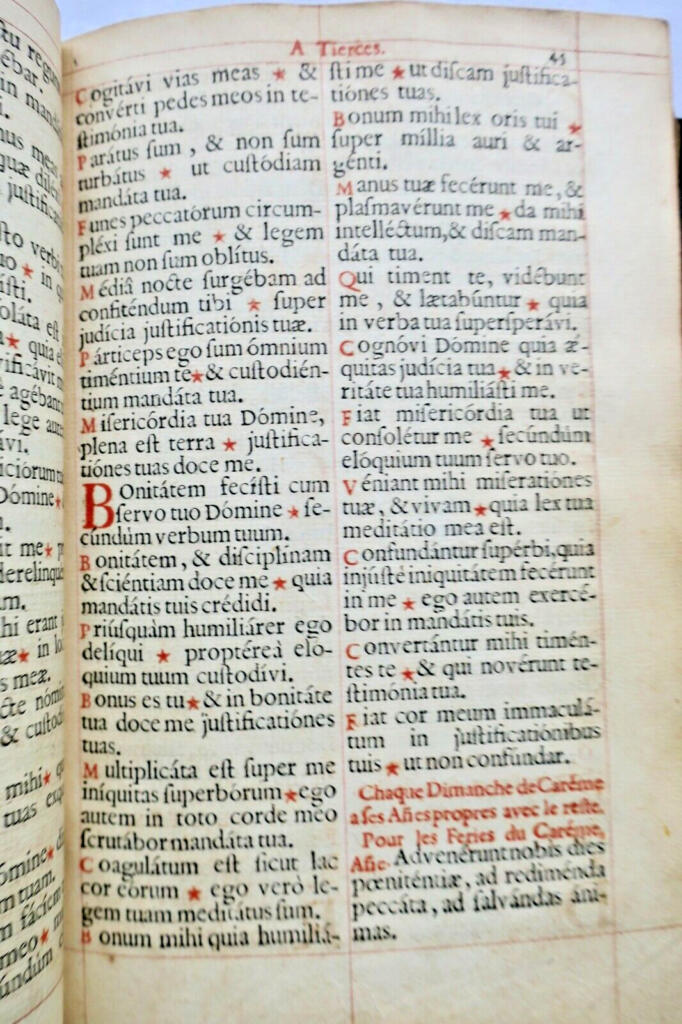 tu reg
ébar.
in mand
i.
nus meas
uæ dile
justific
sto verbi
uo ★ in q
ísti.
soláta est
★ quia e
vificávit m
agébant
lege aute
ávi.
iciórum tu
Dómine ★
n.
it me ★ p
derelinqu
m.
hi erant
æ ★ in lo
s meæ.
cte nómi
& custod
mihi ★ q
tuas ex
ómine ★ d
m tuam.
m fáciem
meo ★
úndúm
A Tierces.
45
Cogitávi vias meas ★ &
convérti pedes meos in te-
stimónia tua.
Parátus sum, & non sum
turbátus ★ ut custódiam
mandáta tua.
Funes peccatórum circum-
pléxi sunt me ★ & legem
tuam non sum oblítus.
Médiâ nocte surgébam ad
confiténdum tibi ★ super
judícia justificatiónis tuæ.
Párticeps ego sum ómnium
timéntium te ★ & custodién-
tium mandáta tua.
Misericórdia tua Dómine,
plena est terra ★ justifica-
tiónes tuas doce me.
Bonitátem fecísti cum
servo tuo Dómine ★ se-
cúndùm verbum tuum.
Bonitátem, & disciplínam
& sciéntiam doce me ★ quia
mandátis tuis crédidi.
Priúsquàm humiliárer ego
delíqui ★ proptéreà eló-
quium tuum custodívi.
Bonus es tu ★ & in bonitáte
tua doce me justificatiónes
tuas.
Multiplicáta est super me
iníquitas superbórum ★ ego
autem in toto corde meo
scrutábor mandáta tua.
Coagulátum est sicut lac
cor eórum ★ ego verò le-
gem tuam meditátus sum.
Bonum mihi quia humiliá-
sti me ★ ut discam justifica-
tiónes tuas.
Bonum mihi lex oris tui ★
super míllia auri & ar-
génti.
Manus tuæ fecérunt me, &
plasmavérunt me ★ da mihi
intelléctum, & discam man-
dáta tua.
Qui timent te, vidébunt
me, & lætabúntur ★ quia
in verba tua supersperávi.
Cognóvi Dómine quia æ-
quitas judícia tua ★ & in ve-
ritáte tua humiliásti me.
Fiat misericórdia tua ut
consolétur me ★ secúndùm
elóquium tuum servo tuo.
Véniant mihi miseratiónes
tuæ, & vivam ★ quia lex tua
meditátio mea est.
Confundántur supérbi, quia
injústè iniquitátem fecérunt
in me ★ ego autem exercé-
bor in mandátis tuis.
Convertántur mihi timén-
tes te ★ & qui novérunt te-
stimónia tua.
Fiat cor meum immaculá-
tum in justificatiónibus
tuis ★ ut non confúndar.
Chaque Dimanche de Caréme
a ses Añes propres avec le reste.
Pour les Feries du Caréme,
Añe. Advenérunt nobis dies
pœniténtiæ, ad rediménda
peccáta, ad salvándas áni-
mas.